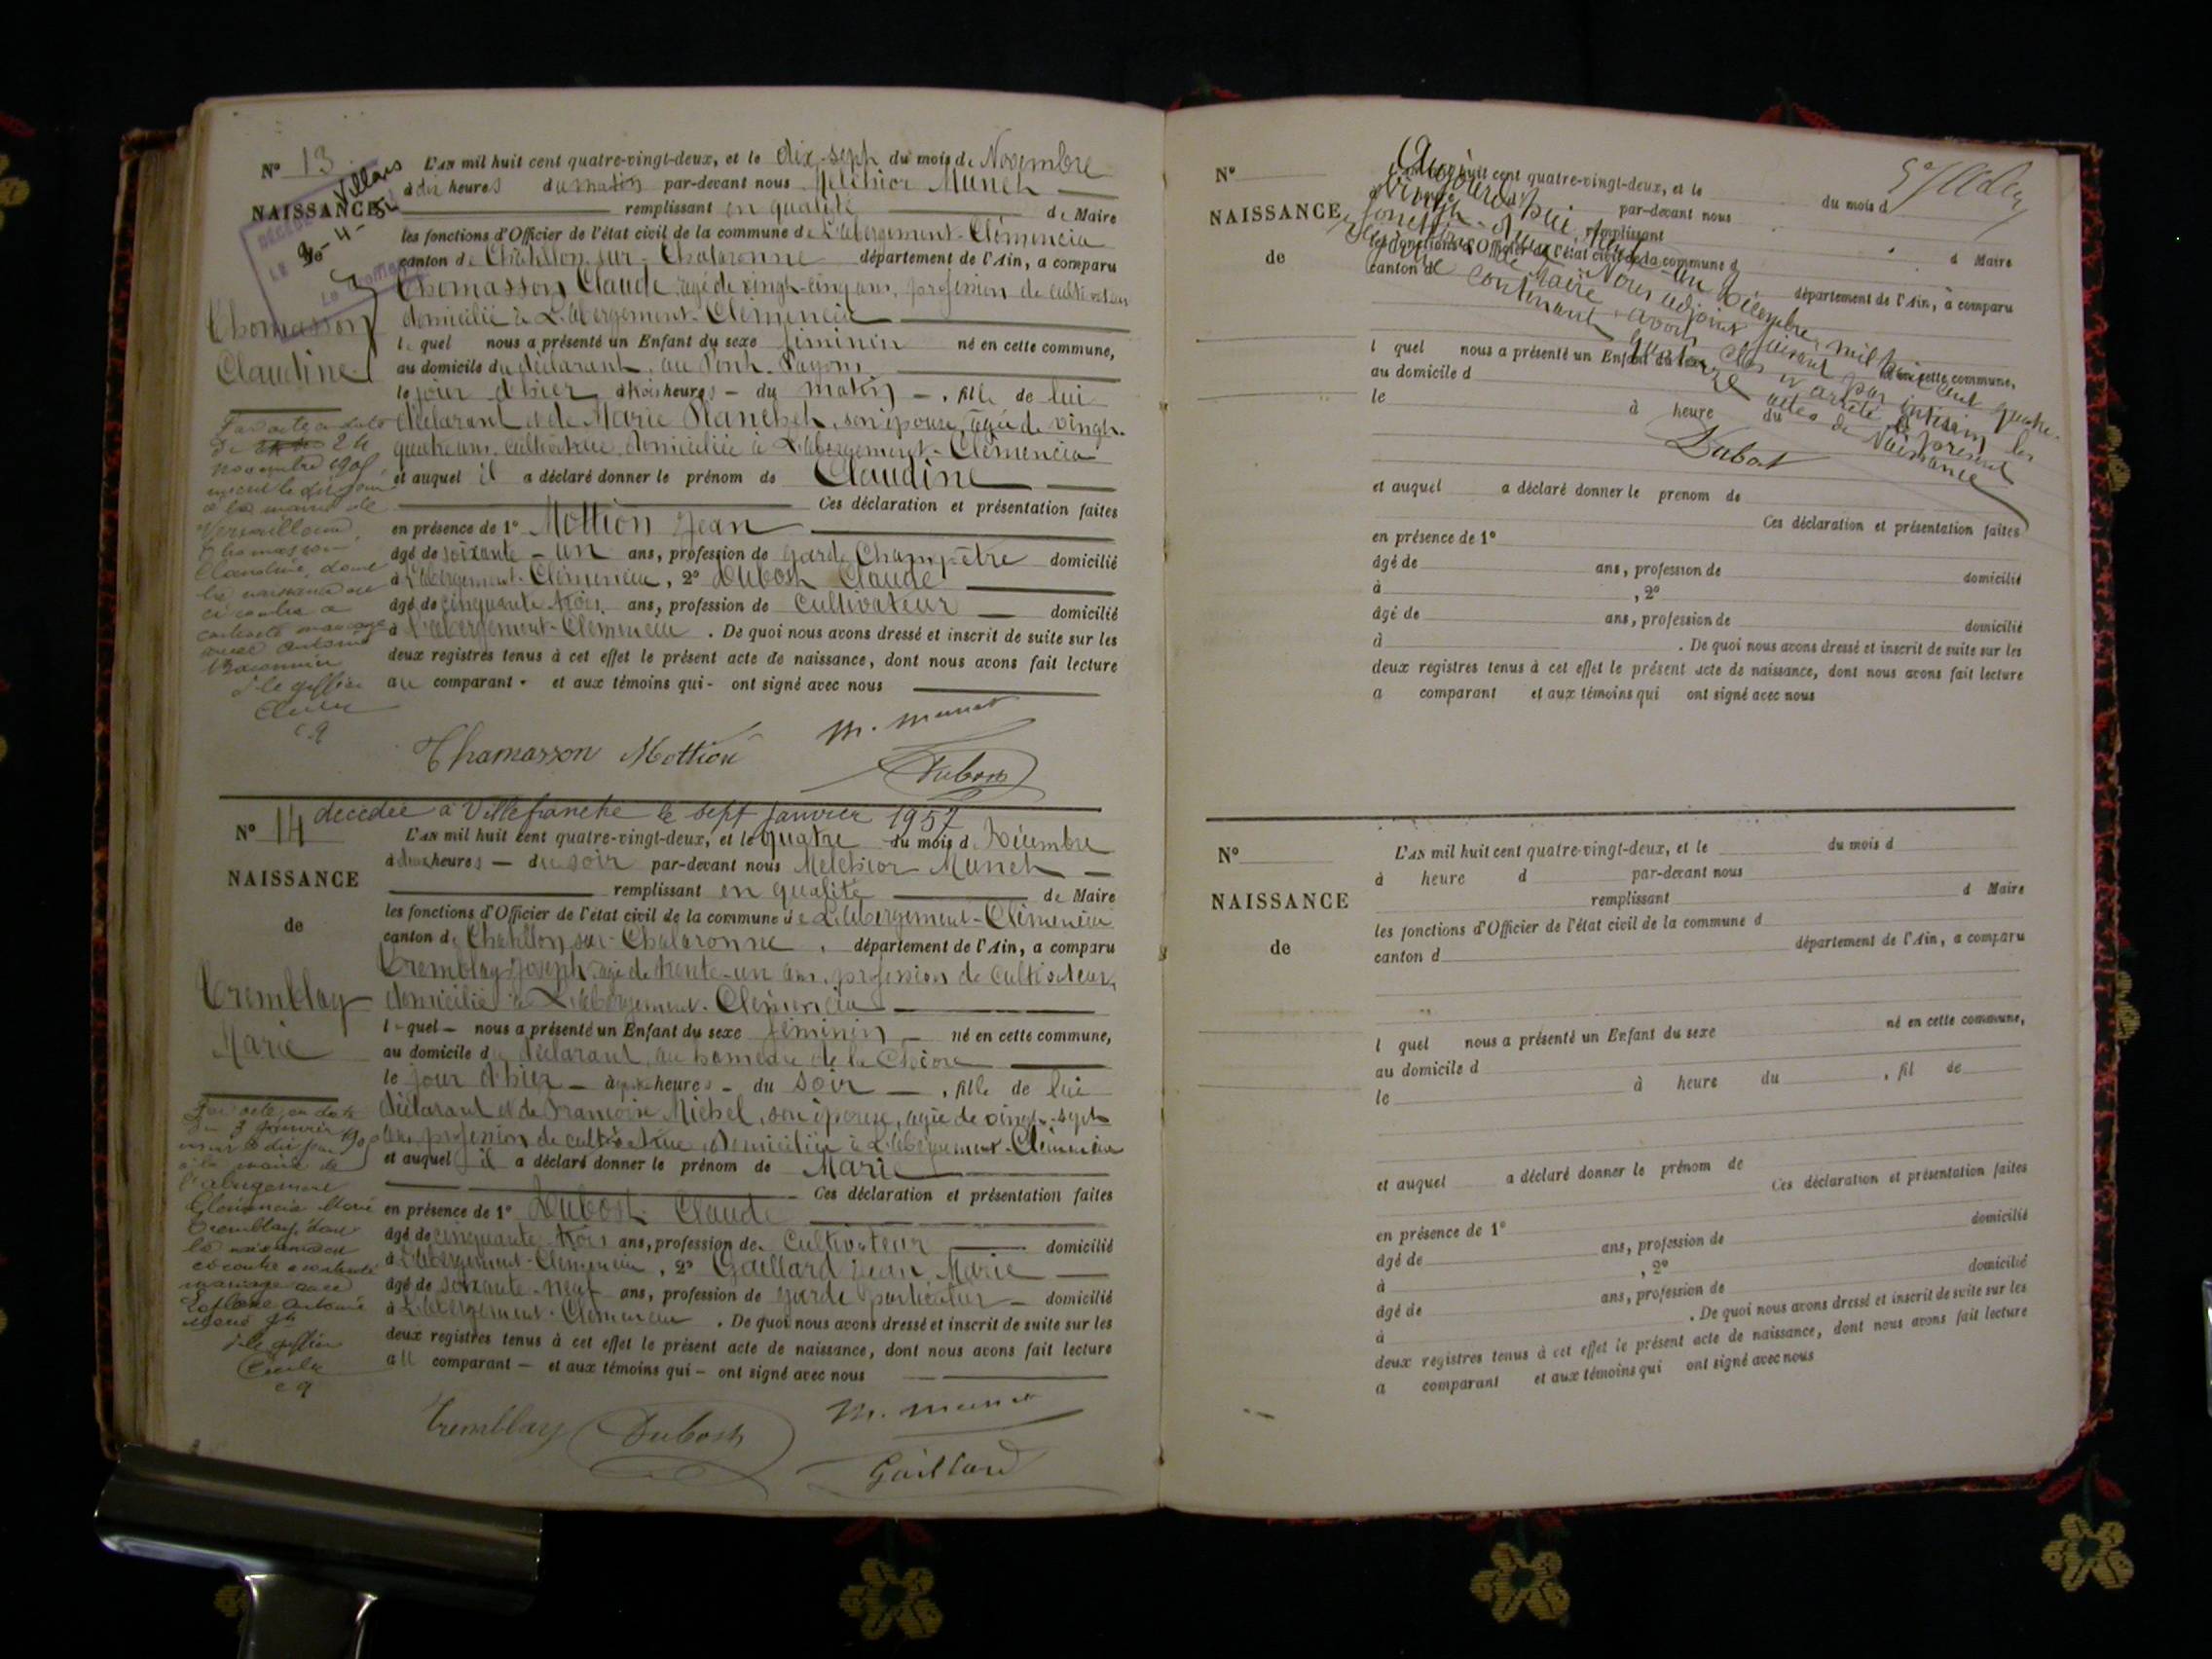 N° 13
NAISSANCE
Villars
DÉCÉDÉ
LE
Thomasson
Claudine
L'AN mil huit cent quatre-vingt-deux, et le dix-sept du mois de Novembre
à dix heures du matin par-devant nous Melchior Munet
remplissant en qualité de Maire
les fonctions d'Officier de l'état civil de la commune de L'abergement-Clémencia
canton de Châtillon-sur-Chalaronne département de l'Ain, a comparu
Thomasson Claude, âgé de vingt-cinq ans, profession de cultivateur
domicilié à L'abergement-Clémencia
lequel nous a présenté un Enfant du sexe féminin né en cette commune,
au domicile du déclarant, au Pont-Payons
le jour d'hier à trois heures - du matin - , fille de lui
déclarant et de Marie Planchet, son épouse, âgée de vingt-
quatre ans, cultivatrice, domiciliée à L'abergement-Clémencia
et auquel il a déclaré donner le prénom de Claudine
Ces déclaration et présentation faites
en présence de 1° Mottion Jean
âgé de soixante-un ans, profession de garde Champêtre domicilié
à L'abergement-Clémencia, 2° Dubost Claude
âgé de cinquante-trois ans, profession de Cultivateur domicilié
à L'abergement-Clémencia. De quoi nous avons dressé et inscrit de suite sur les
deux registres tenus à cet effet le présent acte de naissance, dont nous avons fait lecture
au comparant - et aux témoins qui - ont signé avec nous
Par acte en date
du 24
novembre 1905
inscrit le dit jour
à la mairie de
Versailleux,
Thomasson
Claudine, dont
la naissance est
ci contre a
contracté mariage
avec Antoine
P. le greffier
Thomasson Mottion M. Munet
Dubost
décédée à Villefranche le sept janvier 1957
N° 14
NAISSANCE
de
Tremblay
Marie
L'AN mil huit cent quatre-vingt-deux, et le quatre du mois d Décembre
à deux heures - du soir par-devant nous Melchior Munet
remplissant en qualité de Maire
les fonctions d'Officier de l'état civil de la commune de L'abergement-Clémencia
canton de Châtillon-sur-Chalaronne, département de l'Ain, a comparu
Tremblay Joseph, âgé de trente-un ans, profession de cultivateur,
domicilié à L'abergement-Clémencia
lequel - nous a présenté un Enfant du sexe féminin - né en cette commune,
au domicile du déclarant, au hameau de la
le jour d'hier - à heures - du soir - , fille de lui
déclarant et de Françoise Michel, son épouse, âgée de vingt-sept
ans, profession de cultivatrice, domiciliée à L'abergement-Clémencia
et auquel il a déclaré donner le prénom de Marie
Ces déclaration et présentation faites
en présence de 1° Dubost Claude
âgé de cinquante-trois ans, profession de Cultivateur domicilié
à L'abergement-Clémencia, 2° Gaillard Jean Marie
âgé de soixante-neuf ans, profession de garde particulier - domicilié
à L'abergement-Clémencia. De quoi nous avons dressé et inscrit de suite sur les
deux registres tenus à cet effet le présent acte de naissance, dont nous avons fait lecture
au comparant - et aux témoins qui - ont signé avec nous
Par acte en date
du janvier
inscrit le dit jour
à la mairie de
l'abergement
Clémencia Marie
Tremblay, dont
la naissance est
ci contre a contracté
mariage avec
Antoine
P. le greffier
Tremblay Dubost M. Munet
Gaillard
N°
NAISSANCE
de
L'AN mil huit cent quatre-vingt-deux, et le du mois d
par-devant nous
remplissant
d Maire
les fonctions d'Officier de l'état civil de la commune d
canton d département de l'Ain, a comparu
Aujourd'hui, trente-un Décembre, mil huit cent quatre-
vingt-deux, Nous adjoint faisant par intérim les
fonctions de Maire avons clos et arrêté le présent
registre contenant quatorze actes de Naissance
Dubost
l quel nous a présenté un Enfant du sexe né en cette commune,
au domicile d
le à heure du
et auquel a déclaré donner le prénom de
Ces déclaration et présentation faites
en présence de 1°
âgé de ans, profession de domicilié
à , 2°
âgé de ans, profession de domicilié
à . De quoi nous avons dressé et inscrit de suite sur les
deux registres tenus à cet effet le présent acte de naissance, dont nous avons fait lecture
a comparant et aux témoins qui ont signé avec nous
N°
NAISSANCE
de
L'AN mil huit cent quatre-vingt-deux, et le du mois d
à heure d par-devant nous
remplissant d Maire
les fonctions d'Officier de l'état civil de la commune d
canton d département de l'Ain, a comparu
l quel nous a présenté un Enfant du sexe né en cette commune,
au domicile d
le à heure du , fil de
et auquel a déclaré donner le prénom de
Ces déclaration et présentation faites
en présence de 1°
âgé de ans, profession de domicilié
à , 2°
âgé de ans, profession de domicilié
à . De quoi nous avons dressé et inscrit de suite sur les
deux registres tenus à cet effet le présent acte de naissance, dont nous avons fait lecture
a comparant et aux témoins qui ont signé avec nous